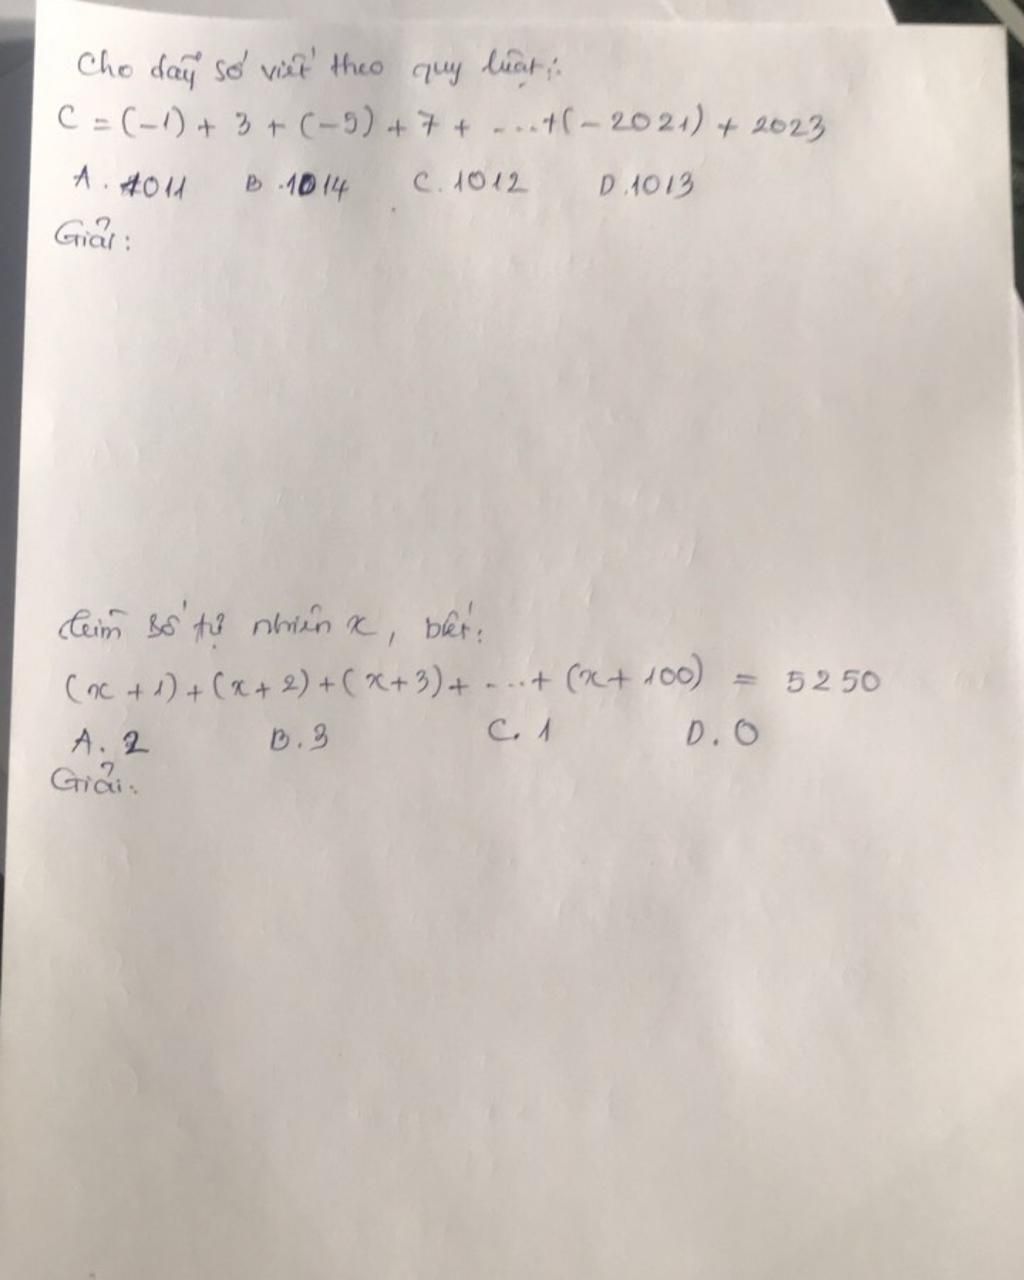 Cho dãy số viết theo quy luật:
C = (-1) + 3 + (-5) + 7 + ...+(-2021) + 2023
A. 1011 B. 1014 C. 1012 D. 1013
Giải:
tìm số tự nhiên x, biết:
(x + 1) + (x + 2) + (x + 3) + ...+ (x + 100) = 5250
A. 2 B. 3 C. 1 D. 0
Giải: